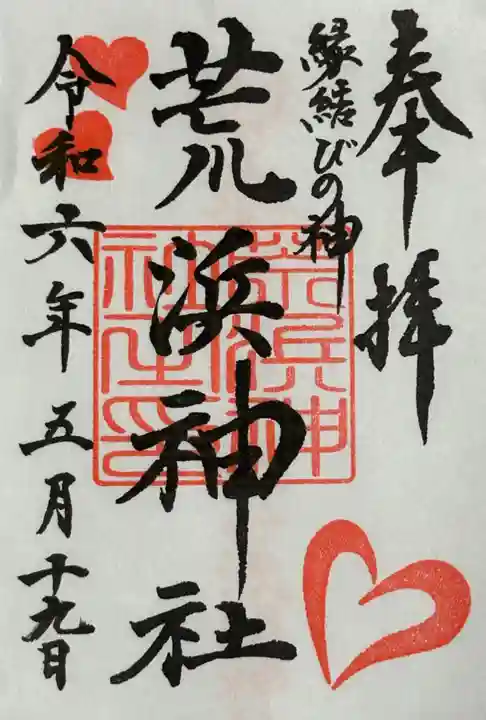 奉拝
縁結びの神
荒浜神社
荒浜神
社之印
令和六年 五月十九日